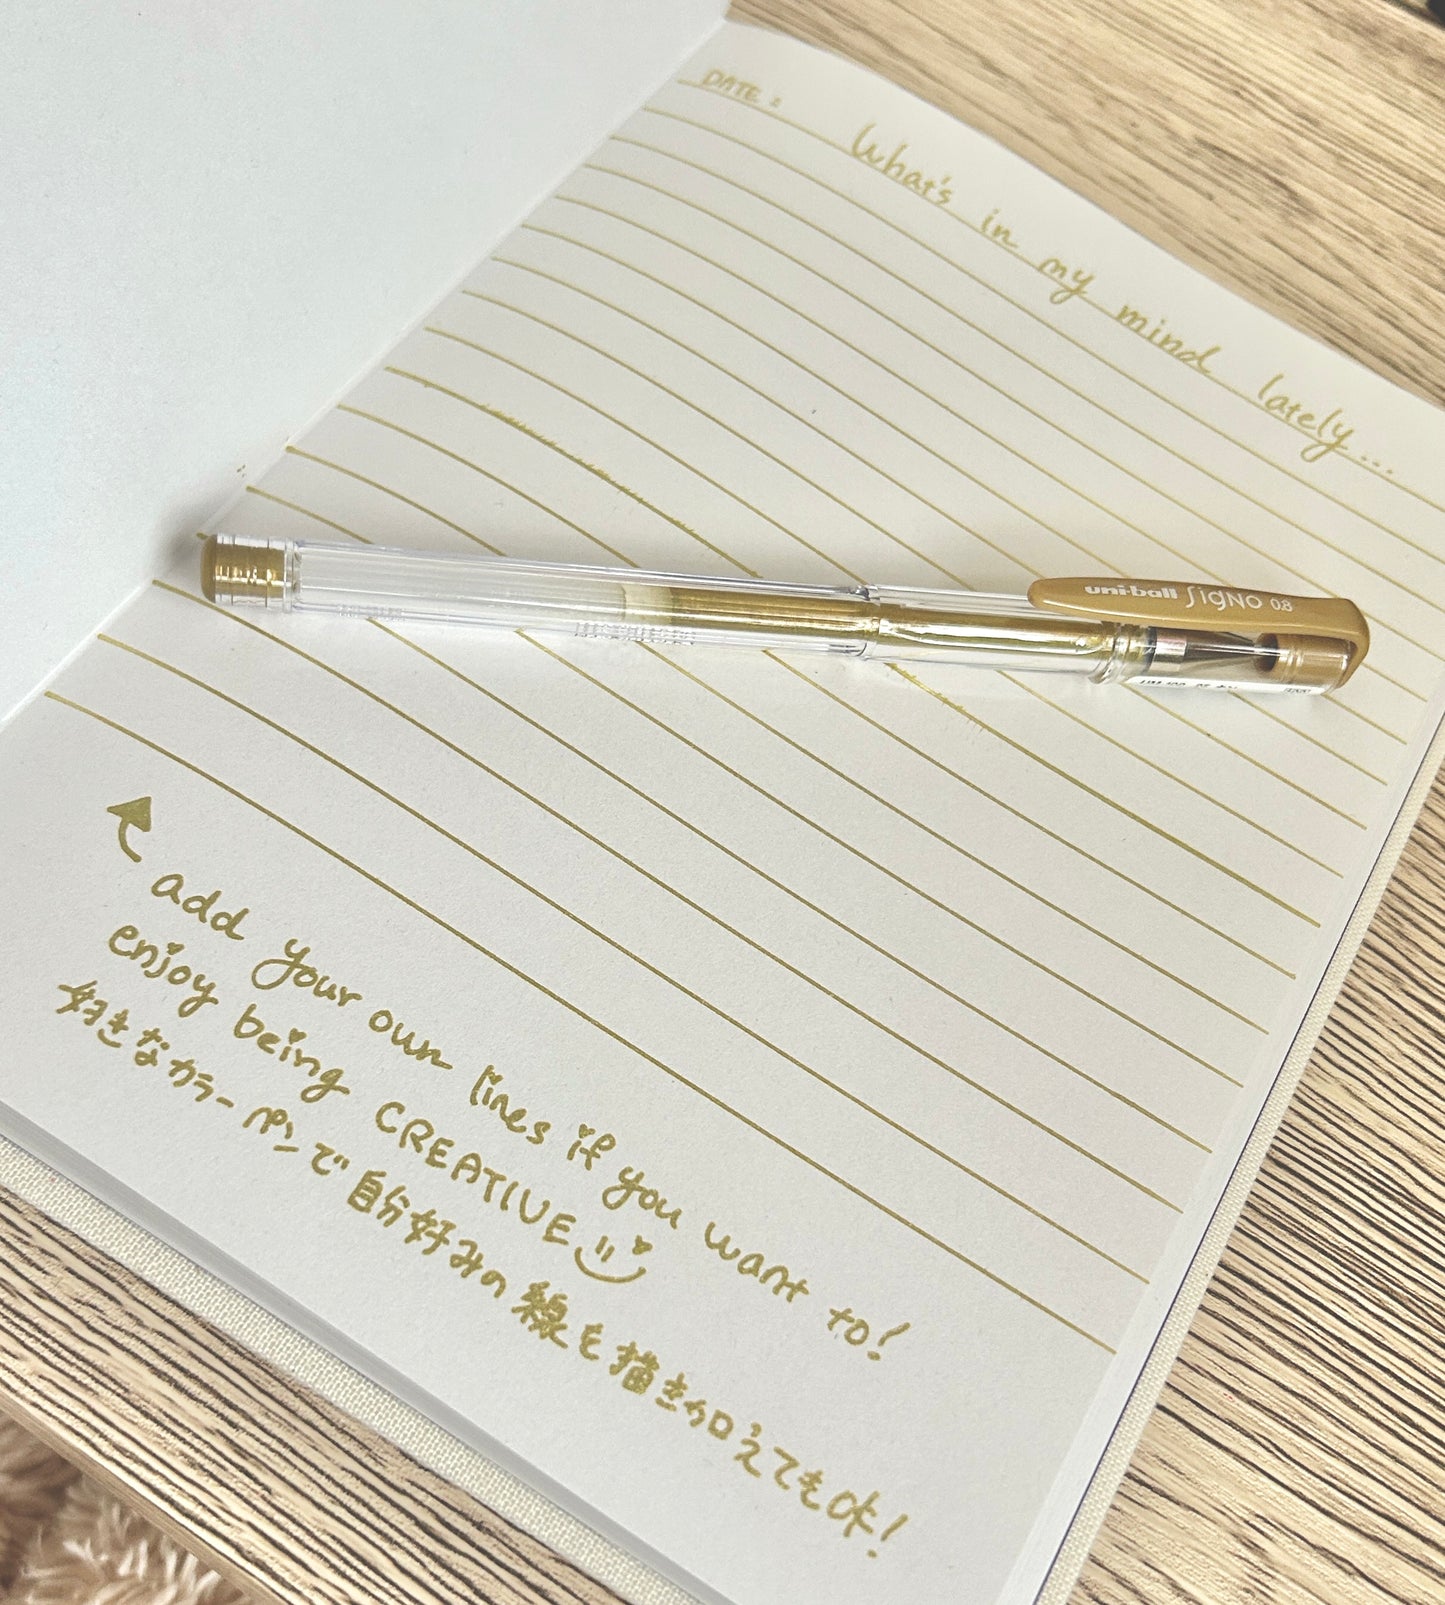 DATE :
What's in my mind lately...
uni-ball Signo 0.8
add your own lines if you want to!
enjoy being CREATIVE
好きなカラーペンで自分好みの線を描き加えても◎!